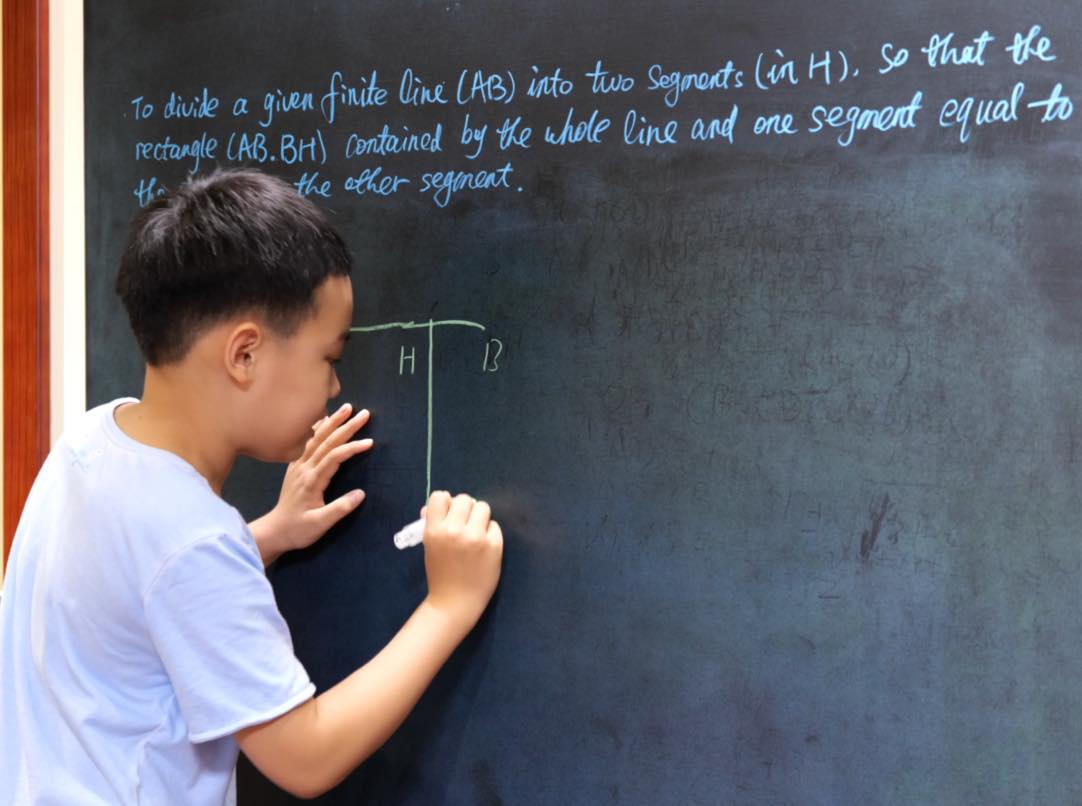 To divide a given finite line (AB) into two segments (in H), so that the
rectangle (AB.BH) contained by the whole line and one segment equal to
the other segment.
H B